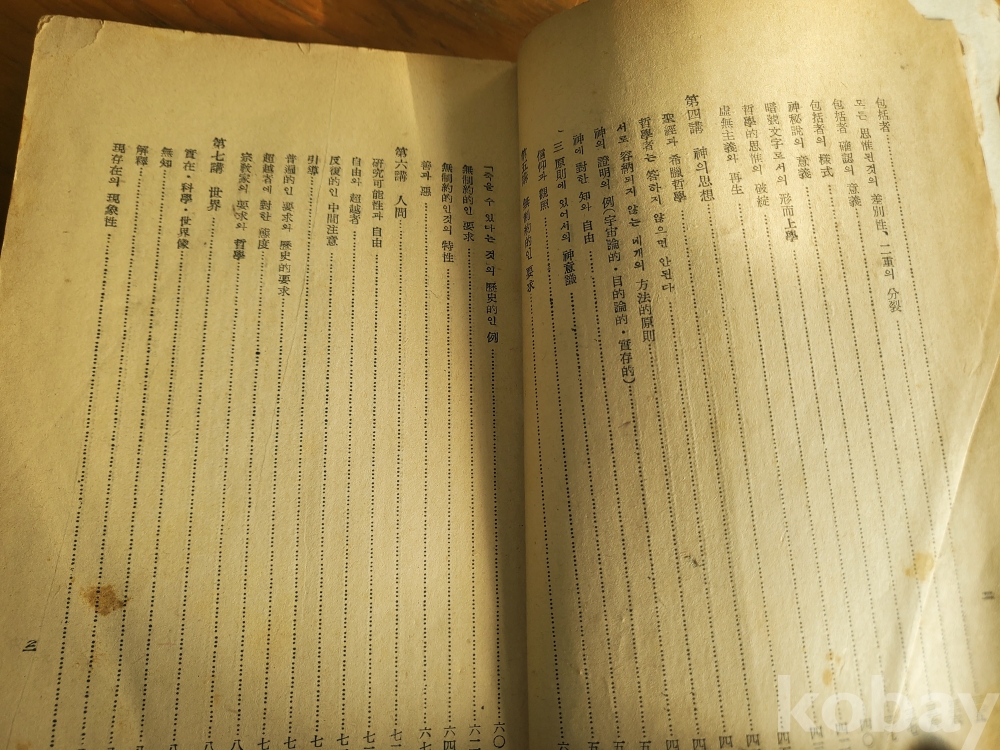 包括者
모든 思惟된것의 差別性, 二重의 分裂
包括者 確認의 意義
包括者의 樣式
神秘說의 意義
暗號文字로서의 形而上學
哲學的思惟의 破綻
虛無主義와 再生
第四講 神의思想
聖經과 希臘哲學
哲學者는 答하지 않으면 안된다
서로 容納되지 않는 네개의 方法的原則
神의 證明의 例(宇宙論的・目的論的・實存的)
神에 對한 知와 自由
三原則에 있어서의 神意識
信仰과 觀照
第五講 無制約的인 要求
「죽을 수 있다는 것」의 歷史的인 例
無制約的인 要求
無制約的인것의 特性
善과 惡
第六講 人間
硏究可能性과 自由
自由와 超越者
反復的인 中間注意
引導
普遍的인 要求와 歷史的要求
超越者에 對한 態度
宗敎家의 要求와 哲學
第七講 世界
實在・科學・世界像
無知
解釋
現存在의 現象性
kobay